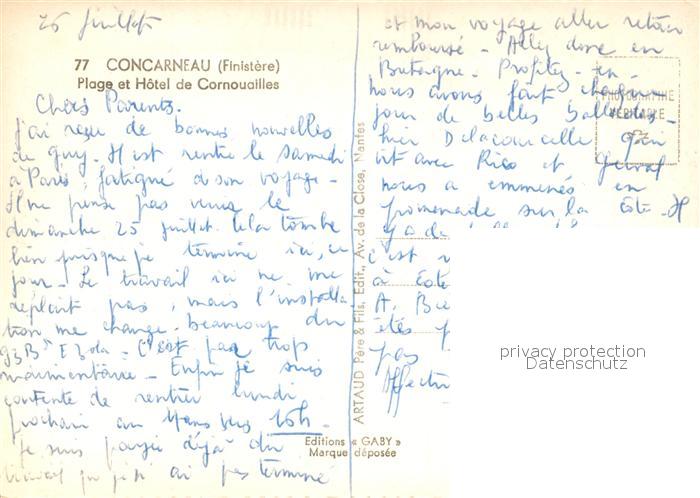 25 Juillet
77 CONCARNEAU (Finistère)
Plage et Hôtel de Cornouailles
Chers Parents.
J'ai reçu de bonnes nouvelles
de Guy. Il est rentré le samedi
à Paris, fatigué de son voyage -
Il ne pense pas venir le
dimanche 25 juillet. Cela tombe
bien puisque je termine ici, ce
jour. Le travail ici ne me
déplait pas, mais l'installa
tion me change beaucoup du
93 Bd E Zola. C'est pas trop
Enfin je suis
contente de rentrer lundi
prochain au Mans vers 16h.
Je suis payée déjà du
travail que je n'ai pas terminé
et mon voyage aller retour
remboursé - Allez donc en
Bretagne. Profitez-en.
nous avons fait chaque
jour de belles ballades.
hier Delacourcelle qui
vit avec Rico et
nous a emmenés en
promenade sur la côte. Il
y a de
c'est
à
A.
étés
pas
Affectu
PHOTOGRAPHIE
VÉRITABLE
ARTAUD Père & Fils, Edit., Av. de la Close, Nantes
Editions « GABY »
Marque déposée
privacy protection
Datenschutz